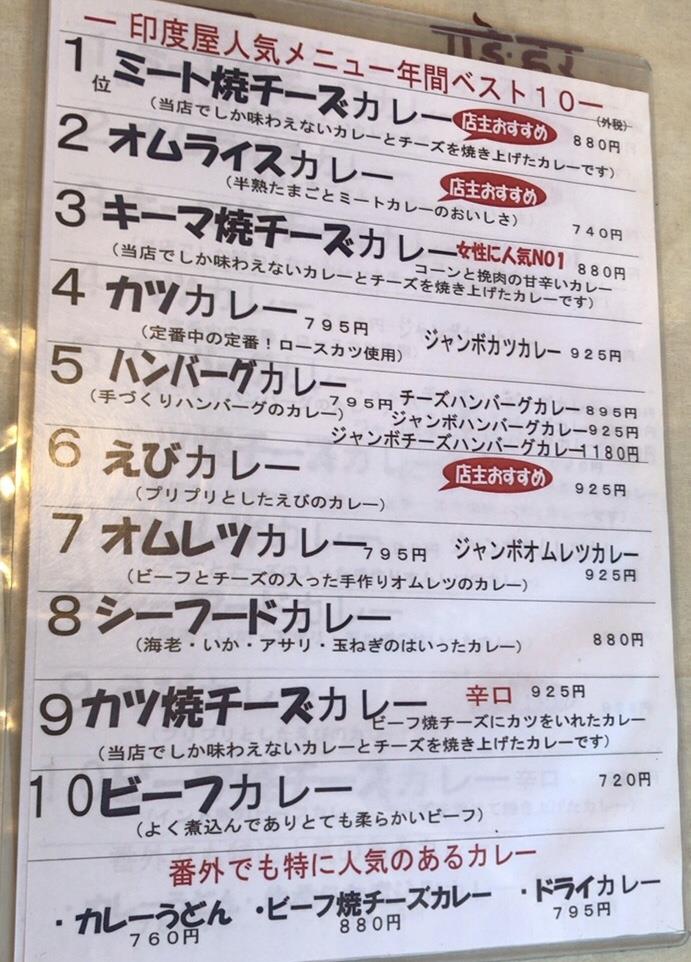 ― 印度屋人気メニュー年間ベスト１０―
(外税)
1位 ミート焼チーズカレー 店主おすすめ 880円
（当店でしか味わえないカレーとチーズを焼き上げたカレーです）
2 オムライスカレー 店主おすすめ
（半熟たまごとミートカレーのおいしさ） 740円
3 キーマ焼チーズカレー 女性に人気NO1 880円
コーンと挽肉の甘辛いカレー
（当店でしか味わえないカレーとチーズを焼き上げたカレーです）
4 カツカレー 795円 ジャンボカツカレー 925円
（定番中の定番！ロースカツ使用）
5 ハンバーグカレー 795円 チーズハンバーグカレー 895円
（手づくりハンバーグのカレー） ジャンボハンバーグカレー 925円
ジャンボチーズハンバーグカレー 1180円
6 えびカレー 店主おすすめ 925円
（プリプリとしたえびのカレー）
7 オムレツカレー 795円 ジャンボオムレツカレー
（ビーフとチーズの入った手作りオムレツのカレー） 925円
8 シーフードカレー
（海老・いか・アサリ・玉ねぎのはいったカレー） 880円
9 カツ焼チーズカレー 辛口 925円
ビーフ焼チーズにカツをいれたカレー
（当店でしか味わえないカレーとチーズを焼き上げたカレーです）
10 ビーフカレー 720円
（よく煮込んでありとても柔らかいビーフ）
番外でも特に人気のあるカレー
・カレーうどん ・ビーフ焼チーズカレー ・ドライカレー
760円 880円 795円